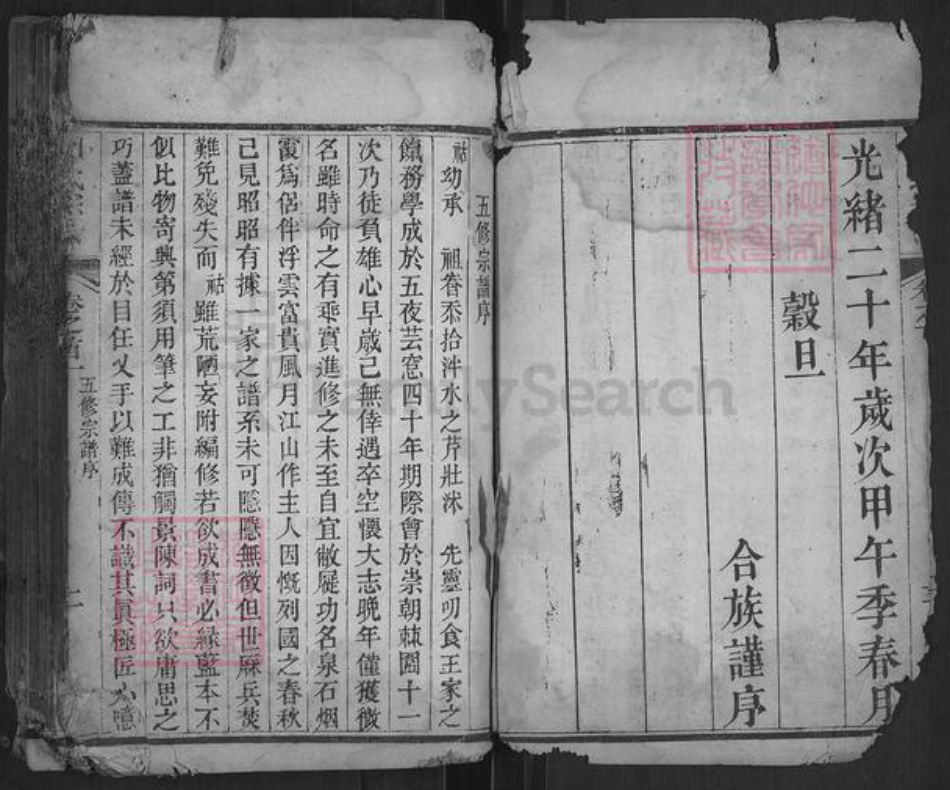 光緒二十年歲次甲午季春月
穀旦
合族謹序
五修宗譜序
祜幼承 祖眷忝拾泮水之芹壯沐 先靈叨食王家之
餼務學成於五夜芸窓四十年期際會於崇朝棘闈十一
次乃徒負雄心早歲己無倖遇卒空懷大志晚年僅獲微
名雖時命之有乖實進修之未至自宜敝屣功名泉石烟
霞爲侶伴浮雲富貴風月江山作主人因慨列國之春秋
己見昭昭有據一家之譜系未可隱隱無徵但世厤兵焚
難免殘失而祜雖荒陋妄附編修若欲成書必緣藍本不
似比物寄興第須用筆之工非猶觸景陳詞只欲庸思之
巧蓋譜未經於目任乂手以難成傳不識其眞極匠心
卷之首
五修宗譜序
FamilySearch